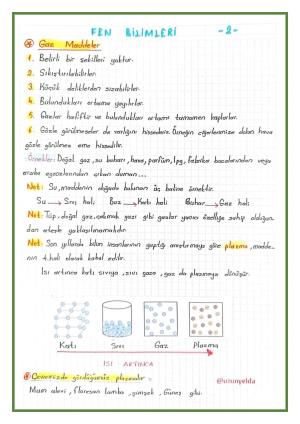 FEN BİLİMLERİ -2-
Gaz Maddeler
1. Belirli bir şekilleri yoktur.
2. Sıkıştırılabilirler.
3. Küçük deliklerden sızabilirler.
4. Bulundukları ortama yayılırlar.
5. Gazlar hafiftir ve bulundukları ortamı tamamen kaplarlar.
6. Gözle görülmeseler de varlığını hissederiz. Örneğin ciğerlerimize dolan hava
gözle görülmez ama hissedilir.
Örnekler: Doğal gaz, su buharı, hava, parfüm, lpg, fabrika bacalarından veya
araba egzozlarından çıkan duman...
Not: Su, maddenin doğada bulunan üç haline örnektir.
Su → Sıvı hali Buz → Katı hali Buhar → Gaz hali
Not: Tüp, doğal gaz, çakmak gazı gibi gazlar yanıcı özelliğe sahip olduğun-
dan ateşle yaklaşılmamalıdır.
Not: Son yıllarda bilim insanlarının yaptığı araştırmaya göre plazma, madde-
nin 4. hali olarak kabul edilir.
Isı artınca katı sıvıya, sıvı gaza, gaz da plazmaya dönüşür.
Katı Sıvı Gaz Plazma
ISI ARTINCA
Çevremizde gördüğümüz plazmalar
@uzunyelda
Mum alevi, floresan lamba, şimşek, Güneş gibi.